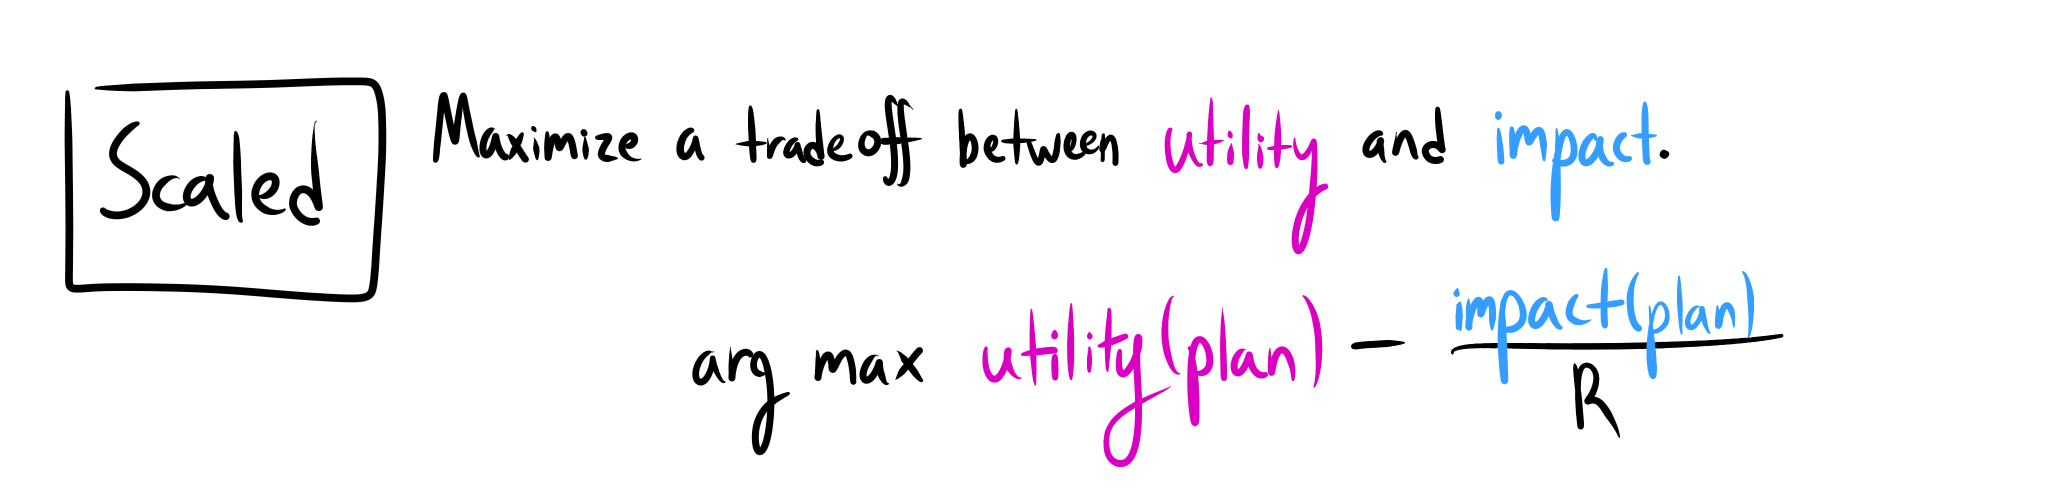 Scaled
Maximize a tradeoff between utility and impact.
arg max utility(plan) - impact(plan)
R